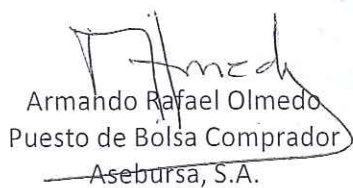 Armando Rafael Olmedo
Puesto de Bolsa Comprador
Asebursa, S.A.